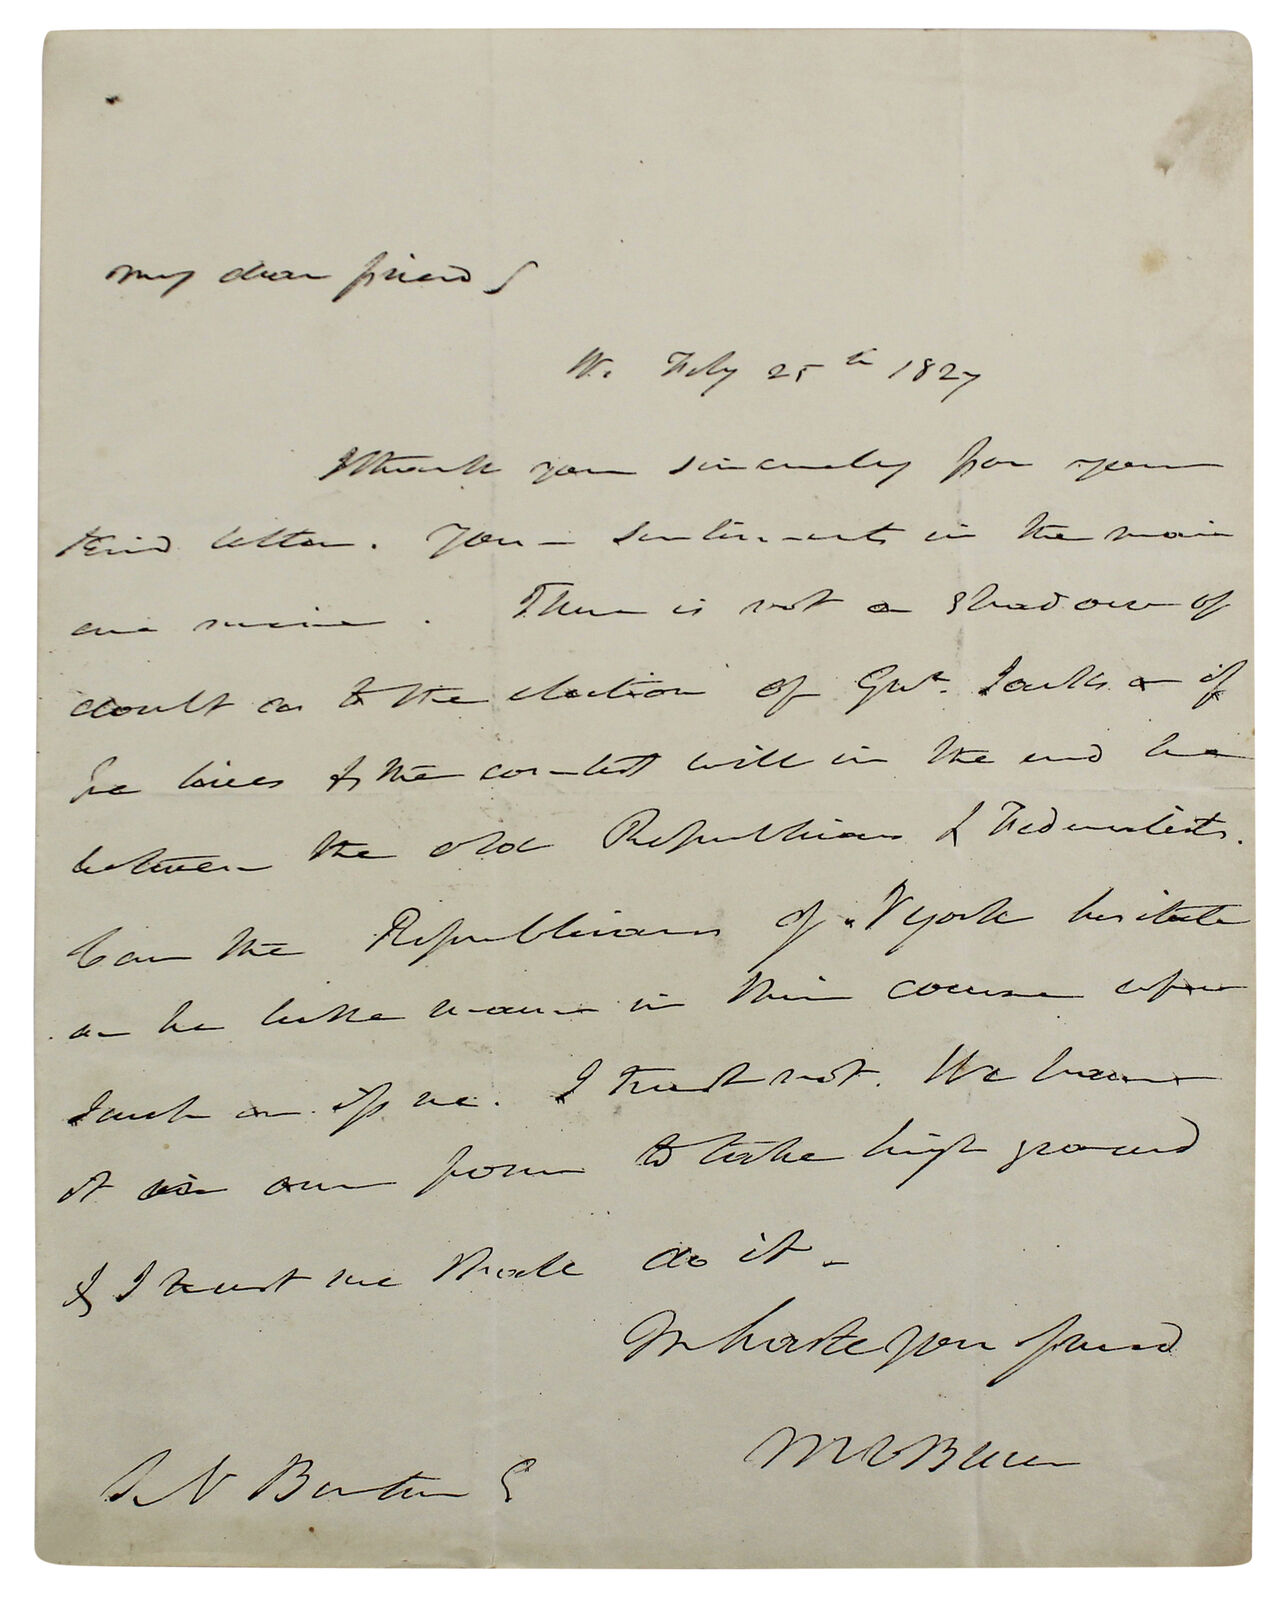 My dear friend
W. Feby 25th 1827
I thank you sincerely for your
kind letter. Your sentiments in the main
are mine. There is not a shadow of
doubt as to the election of Genl. Jackson if
he lives & the contest will in the end be
between the old Republicans & Federalists.
Can the Republicans of N York hesitate
or be luke warm in their course upon
such an issue. I trust not. We have
it in our power to take high ground
& I trust we shall do it.
In haste your friend
M V Buren